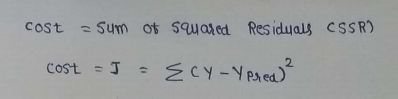 cost = sum of squared Residuals (SSR)
cost = J = Σ(Y - Ypred)²